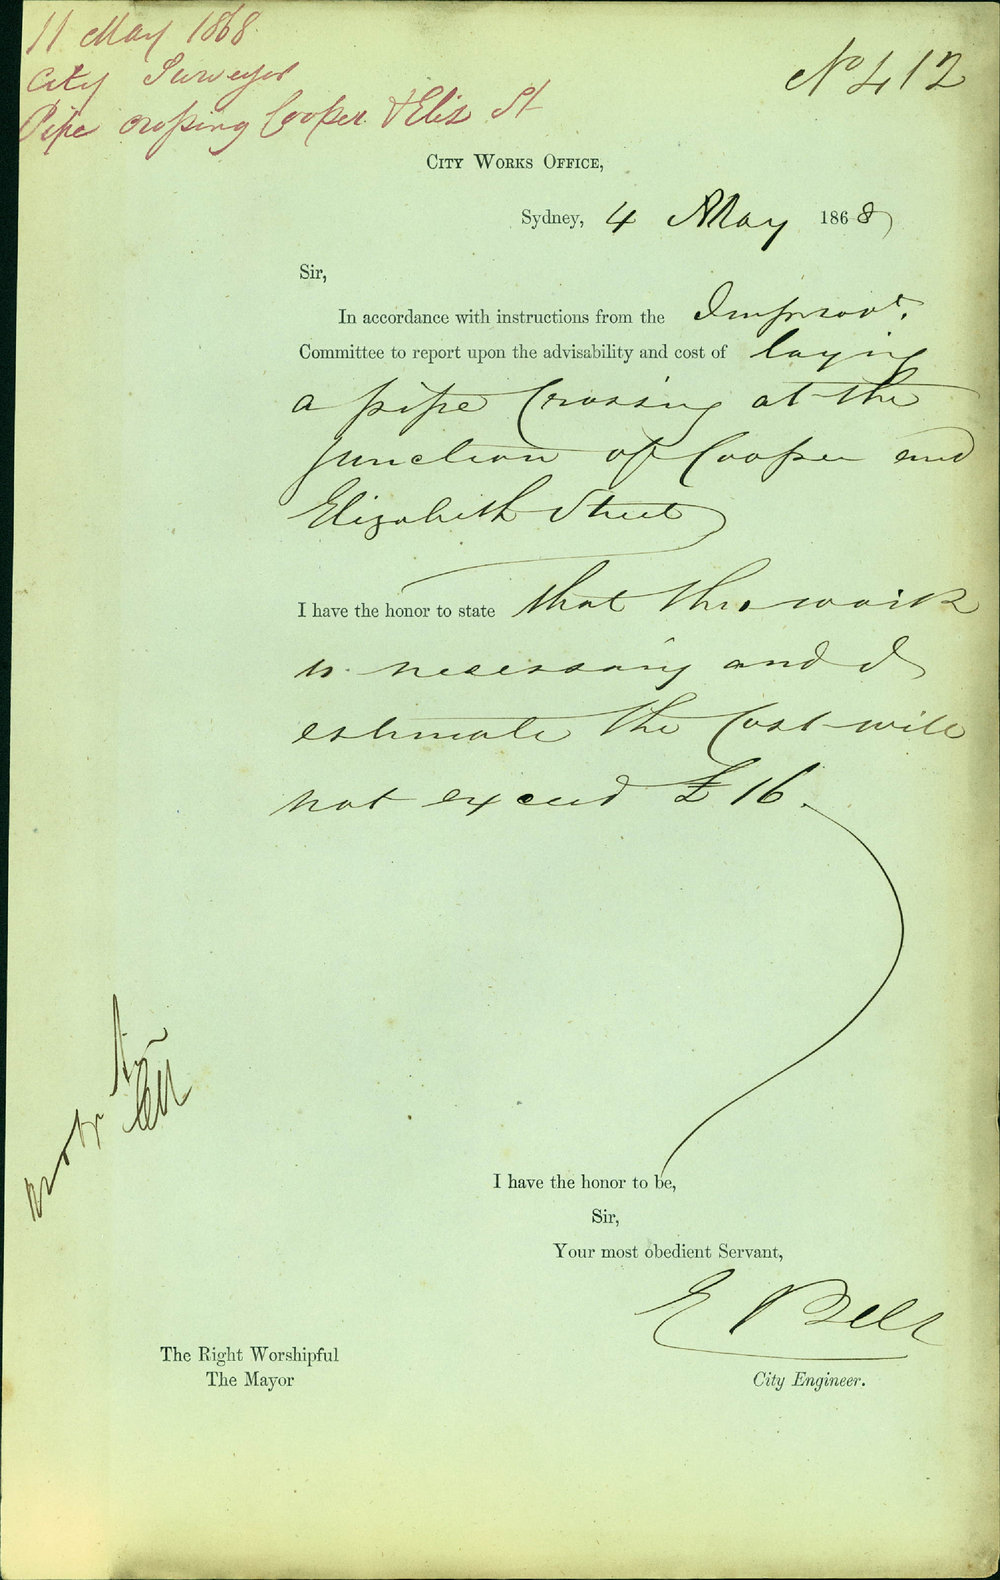 11 May 1868
City Surveyor
Pipe crossing Cooper & Eliz St
No 412
City Works Office,
Sydney, 4 May 1868
Sir,
In accordance with instructions from the Improvt.
Committee to report upon the advisability and cost of laying
a pipe Crossing at the
junction of Cooper and
Elizabeth Street
I have the honor to state that this work
is necessary and I
estimate the Cost will
not exceed £16.
I have the honor to be,
Sir,
Your most obedient Servant,
E Bell
City Engineer.
The Right Worshipful
The Mayor